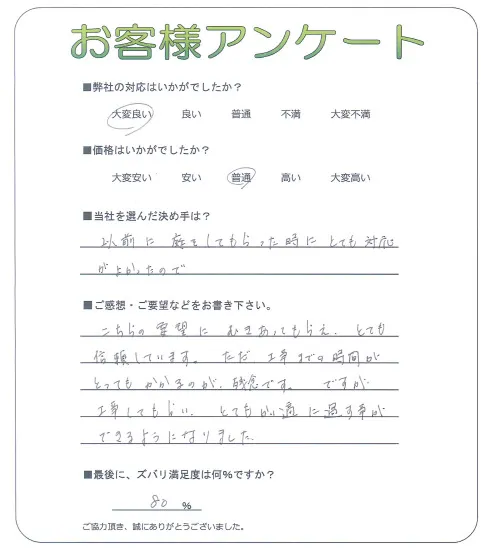 お客様アンケート
■弊社の対応はいかがでしたか？
大変良い 良い 普通 不満 大変不満
■価格はいかがでしたか？
大変安い 安い 普通 高い 大変高い
■当社を選んだ決め手は？
以前に 庭をしてもらった時に とても対応
がよかったので
■ご感想・ご要望などをお書き下さい。
こちらの要望に むきあってもらえ、とても
信頼しています。 ただ、工事までの時間が
とってもかかるのが、残念です。 ですが
工事してもらい、 とてもかい適に過す事が
できるようになりました。
■最後に、ズバリ満足度は何％ですか？
80 %
ご協力頂き、誠にありがとうございました。